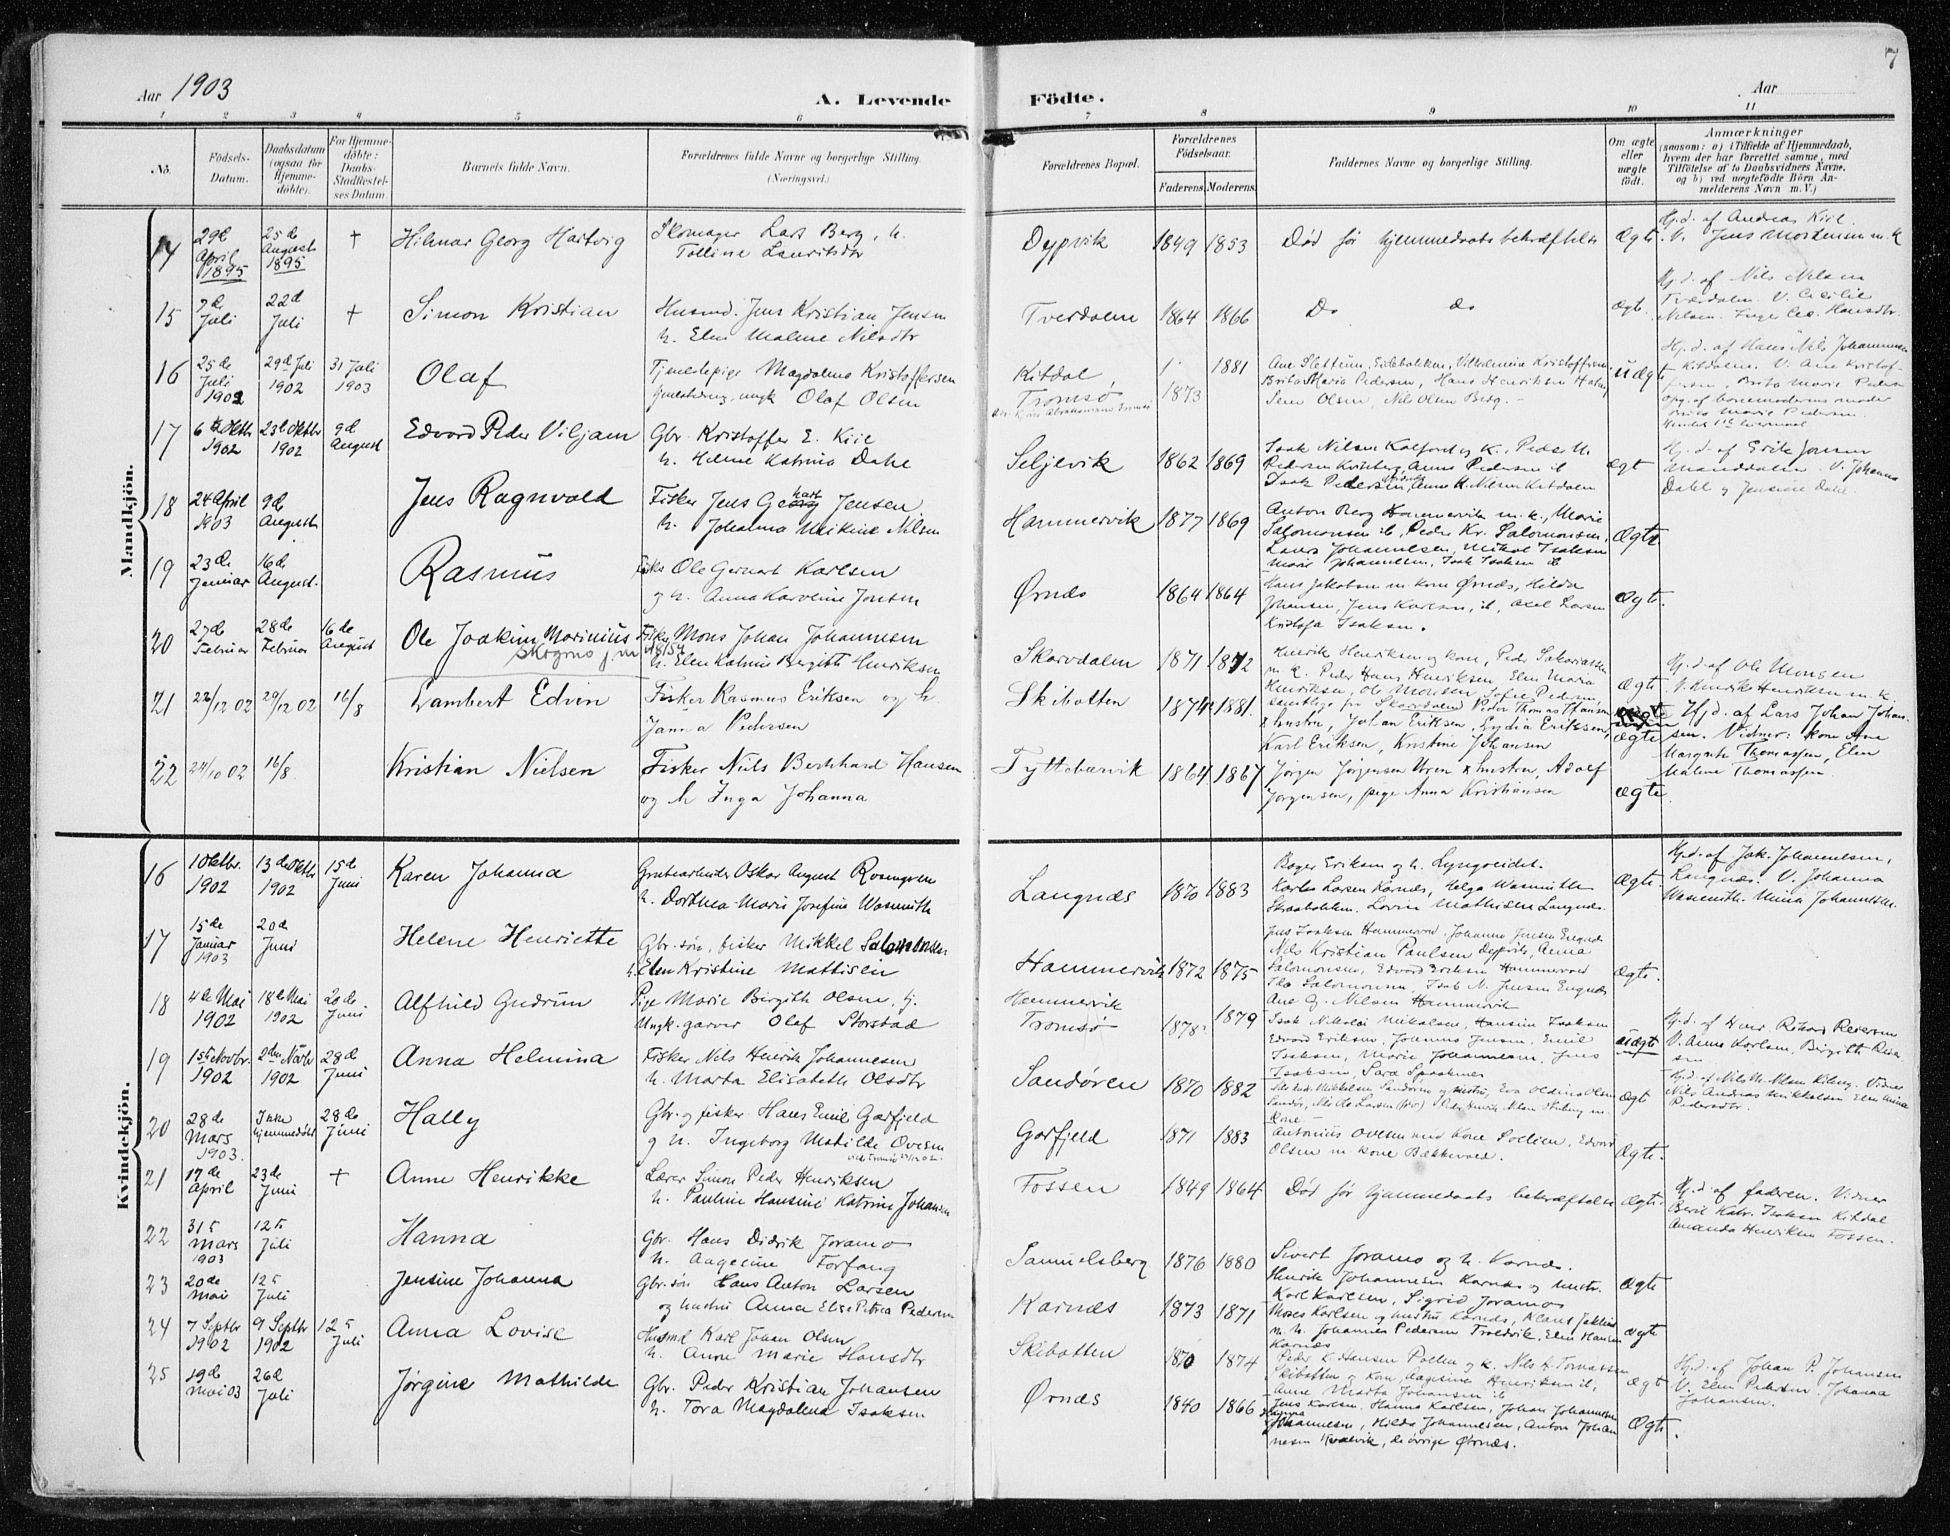 7
Aar 1903
A. Levende
Födte.
Aar
1 2 3 4 5 6 7 8 9 10 11
No.
Födsels-
Datum.
Daabsdatum
(ogsaa för
Hjemme-
döbte).
For Hjemme-
döbte:
Daabs-
Stadfæstel-
ses Datum
Barnets fulde Navn.
Forældrenes fulde Navne og borgerlige Stilling.
(Næringsvei.)
Forældrenes Bopæl.
Forældrenes
Födselsaar.
Faderens. Moderens.
Faddernes Navne og borgerlige Stilling.
Om ægte
eller
uægte
födt.
Anmærkninger
(saasom: a) i Tilfælde af Hjemmedaab,
hvem der har forrettet samme, med
Tilföielse af to Daabsvidners Navne,
og b) ved uægtefödte Börn An-
melderens Navn m. V.)
Mandkjön.
14 29de April 1895 25de August 1895 † Hilmar Georg Hartvig
Skomager Lars Berg, h.
Tolline Lauritsdtr
Dypvik 1849 1853 Død før hjemmedaabsbekræftelse ægte
Hj.d. af Andreas Kiil.
V. Jens Mortensen m. k
15 7de Juli 22d Juli † Simon Kristian
Husmd. Jens Kristian Jensen
h. Elen Malene Nilsdtr
Tverdalen 1864 1866 Do do ægt.
Hj.d. af Nils Nilsen
Tverdalen. V. Cecilie
Nilsen. Inger Cec. Hansdtr.
16 25de Juli 1902 29de Juli 1902 31 Juli 1903 Olaf
Tjenestepige Magdalena Kristoffersen
ungk. Olaf Olsen
Kitdal
Tromsø
1873 1881
Brita Maria Pedersen, Hans Henriksen
Olsen, Nils Olsen Berg. -
uægt
Hj.d. af Hans Nils Johannesen
Kitdalen. V. Ane Kristof-
fersen, Brita Marie Peders
opg. af barnemoderens moder
Brita Marie Pedersen.
17 6te Oktbr 1902 23de Oktbr 1902 9d August Edvard Peder Viljam
Gbr. Kristoffer E. Kiil
h. Helene Katrine Dahl
Seljevik 1862 1869
Isak Nilsen Kalfjord og k., Peder M.
Pedersen, Anne Pedersen ib
Isak Pedersen, Anne M. Nilsen Kitdalen
ægt
Hj.d. af Erik Jonsen
Manddalen. V. Johanna
Dahl og Jensine Dahl.
18 24 April 1903 9de August Jens Ragnvald
Fisker Jens Gerhart Jensen
h. Johanna Meikine Nilsen
Hammervik 1877 1869
Anton Berg Hammervik m. k., Marie
Salomonsen ib, Peder Kr. Salomonsen,
Laura Johannesen, Mikal Isaksen
Marie Johannesen, Isak Isaksen ib
ægte.
19 23de Januar 16de August. Rasmus
Fisker Ole Gerhart Karlsen
og h. Anna Karoline Jensen
Ørnæs 1864 1864
Hans Jakobsen m. kone Ørnæs, Hilda
Johansen, Jens Karlsen, ib, Axel Larsen
Kristofa Isaksen.
ægt.
20 27de Februar 28de Februar 16de August Ole Joakim Marinius
Fisker Mons Johan Johannesen
h. Elen Katrine Bergith Henriksen
Skarvdalen 1871 1872
Henrik Henriksen og kone, Peder Sakariassen
m. k. Peder Hans Henriksen, Elen Maria
Henriksen, Ole Monsen, Sofie Pedersen
samtlige fra Skarvdalen
ægte
Hj.d. af Ole Monsen
V. Henrik Henriksen m. k.
21 22/12 02 29/12 02 16/8 Lambert Edvin
Fisker Rasmus Eriksen og h
Janna Pedersen
Skibotten 1874 1881.
Peder Thomas Hansen
& hustru, Johan Eriksen, Lydia Eriksen,
Karl Eriksen, Kristine Johansen
ægte
Hj.d. af Lars Johan Johan-
sen. Vidner: kone Ane
Margrete Thomassen, Elen
Malene Thomassen.
22 24/10 02 16/8. Kristian Nielsen
Fisker Nils Bernhard Hansen
og h Inga Johanna
Tyttebærvik 1864 1867
Jørgen Jørgensen Voren & hustru, Adolf
Jørgensen, pige Anna Kristiansen
ægte.
Kvindekjön.
16 1 Oktbr. 1902 13de Oktbr 1902 15de Juni Karen Johanna
Grubearbeider Oskar August Rosengren
h. Dorthea Marie Josefine Wasmuth
Langnæs 1870 1883
Boger Eriksen og h. Lyngseidet.
Karles Larsen Karnæs, Helga Wasmuth
Lovise Mathisen Langnæs.
ægte.
Hj.d. af Jak. Johannesen,
Langnæs. V. Johanna
Wasmuth. Mina Johannessen.
17 15de Januar 1903 20de Juni Helene Henriette
Gbr. søn, fisker Mikkel Salomonsen
h. Elen Kristine Mattisen
Hammervik 1872 1875
Jens Isaksen Hammervold. Johanna Jensen Engnæs
Nils Kristian Paulsen Dypvik, Anna
Salomonsen, Edvard Eriksen Hammervold
Salomonsen, Isak N. Jensen Engnæs
Ane G. Nilsen Hammervik
ægte.
18 4de Mai 1902 18de Mai 1902 20de Juni Alfhild Gudrun
Pige Marie Birgith Olsen, h.
Ungk. garver Olaf Storstad
Hammervik
Tromsø
1878 1879
Isak Nikolai Mikalsen, Hansine Isaksen
Edvard Eriksen, Johanna Jensen, Emil
Isaksen, Marie Johannesen, Jens
Isaksen, Sara
uægte
Hj.d. af Henr. Rikard Pedersen
V. Anna Karlsen, Birgith Peder-
sen
19 15de Novbr. 1902 2den Marts 1902 28de Juni Anna Helmina
Fisker Nils Henrik Johannesen
h. Marta Elisabeth Olsdtr
Sandøren 1870 1882
ægt
Hj.d. af Nils M. Nilsen. Vidner
Nils Andreas Mikkelsen. Elen Anna
Pedersdtr.
20 28de Mars 1903. Ikke hjemmedøbt 28de Juni Hally
Gbr. og fisker Hans Emil Garfjeld
og h. Ingeborg Matilde Ovesen
Garfjeld 1871 1883
Antonius Ovesen med kone Pollen, Edvard
Olsen m kone Bakkevold.
ægte.
21 17de April 23de Juni † Anne Henrikke
Lærer Simon Peder Henriksen
h. Pauline Hansine Katrine Johansen
Fossen 1849 1864 Død før hjemmedaabs bekræftelse ægte.
Hj.d. af faderen. Vidner
Berit Katr. Isaksen Kitdal
Amanda Henriksen Fossen.
22 31te Mars 1903 12te Juli Hanna
Gbr. Hans Didrik Joramo
h. Aagesine Forfang
Samuelsberg 1876 1880
Sivert Joramo og h. Karnæs.
Henrik Johannesen Karnæs og hustr.
Karl Karlsen, Sigrid Joramo
ægte
23 20de Mai 12te Juli Jensine Johanna
Gbr. søn Hans Anton Larsen
og hustru Anna Elise Petrea Pedersen
Karnæs 1873 1871
Moses Karlsen og hustru Karnæs, Klaus Jakobsen
m. h. Johannes Pedersen Troldvik, Elen Hansen
Karnæs
ægte
24 7 Septbr 1902 9 Septbr 1902 12te Juli Anna Lovise
Husmd Karl Johan Olsen
h. Anne Marie Hansdtr
Skibotten 1870 1874
Peder K. Hansen Pollen og k. Nils A. Tomassen
Skibotten og kone, Aagesine Henriksen ib,
Anne Marta Johansen ib
ægt
Hj.d. af Johan P. Johansen
V. Elen Pedersen. Johanna
Johansen.
25 19de Mai 03 26de Juli Jørgine Mathilde
Gbr. Peder Kristian Johansen
h. Tora Magdalena Isaksen
Ørnæs 1840 1866
Jens Karlsen. Hanna Karlsen, Johan Johannesen
Johannesen, Hilda Johannesen, Anton Johan-
nesen Kvalvik, de øvrige Ørnæs.
ægte.